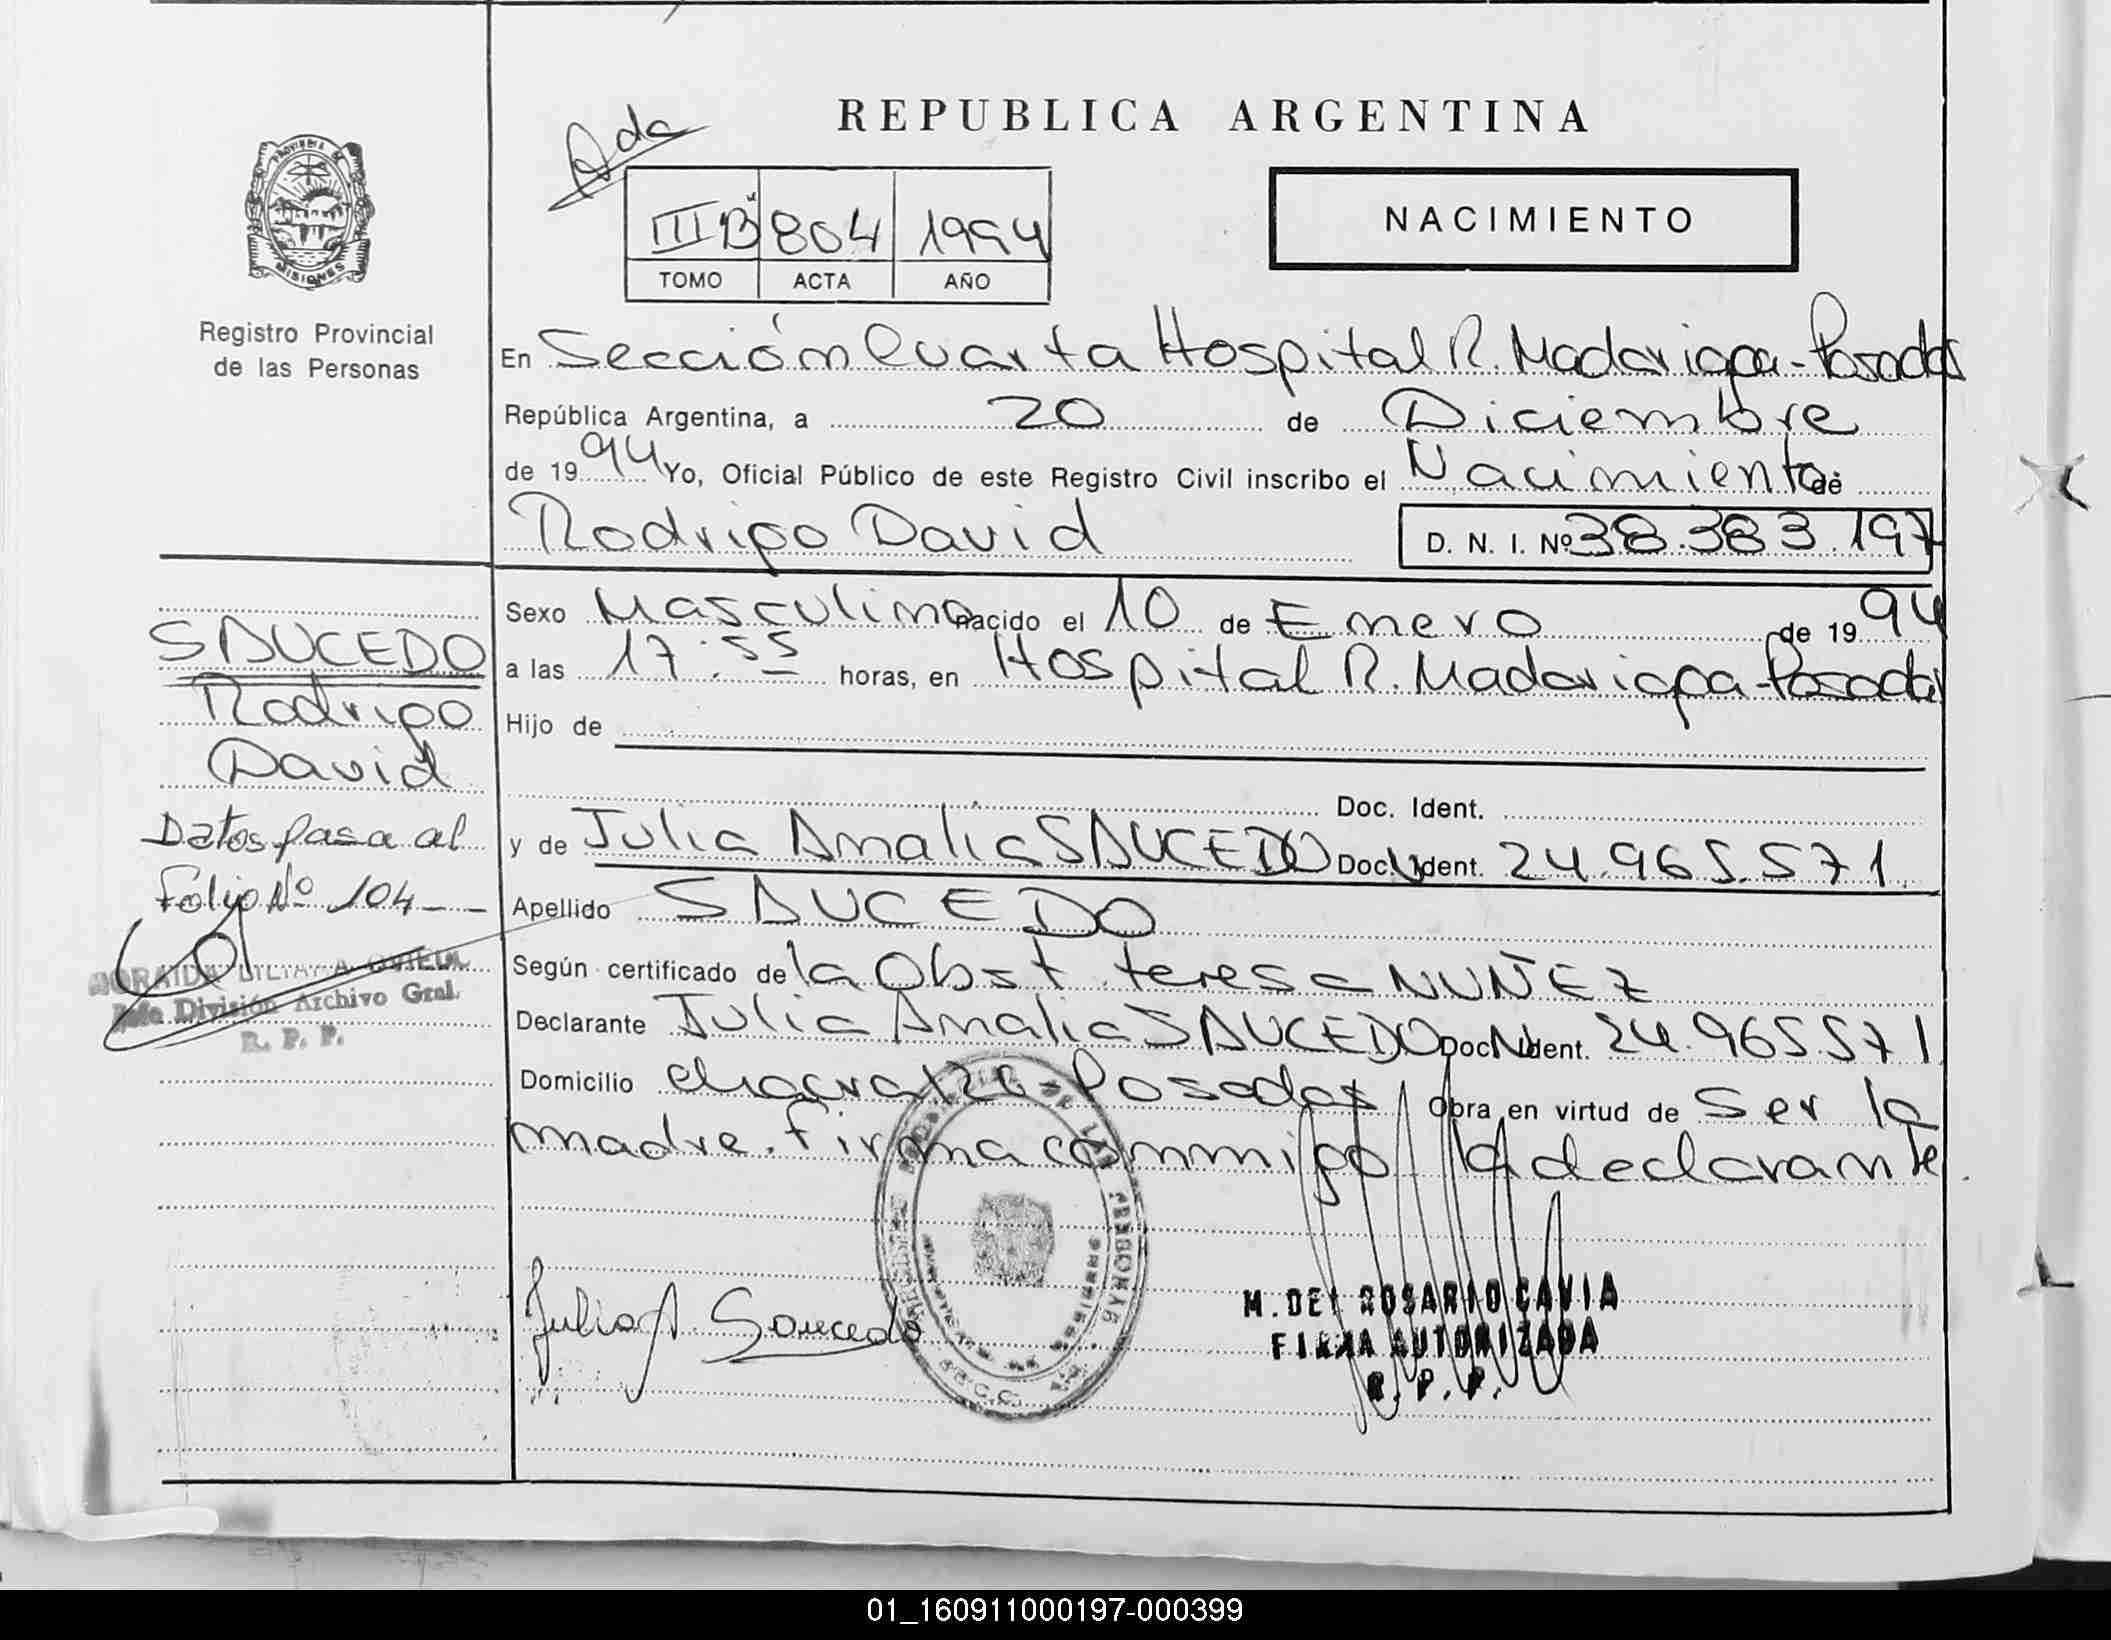 REPUBLICA ARGENTINA
Ada
IIIB 804 1994
TOMO ACTA AÑO
NACIMIENTO
PROVINCIA DE
MISIONES
Registro Provincial
de las Personas
En Sección Cuarta Hospital R. Madariaga - Posadas
República Argentina, a 20 de Diciembre
de 1994 Yo, Oficial Público de este Registro Civil inscribo el Nacimiento de
Rodrigo David D. N. I. Nº 38.383.197
Sexo Masculino nacido el 10 de Enero de 1994
a las 17:55 horas, en Hospital R. Madariaga - Posadas
Hijo de
Doc. Ident.
y de Julia Amalia SAUCEDO Doc. Ident. 24.965.571
Apellido SAUCEDO
Según certificado de la Obst. teresa NUÑEZ
Declarante Julia Amalia SAUCEDO Doc. Ident. 24.965.571
Domicilio chacra 126 - Posadas Obra en virtud de Ser la
madre. firma conmigo la declarante.
SAUCEDO
Rodrigo
David
Datos pasa al
Folio Nº 104 - -
LILIANA
Jefe División Archivo Gral.
R. P. P.
Julia A. Saucedo
DE LAS PERSONAS
M. DEL ROSARIO CAVIA
FIRMA AUTORIZADA
R. P. P.
01_160911000197-000399